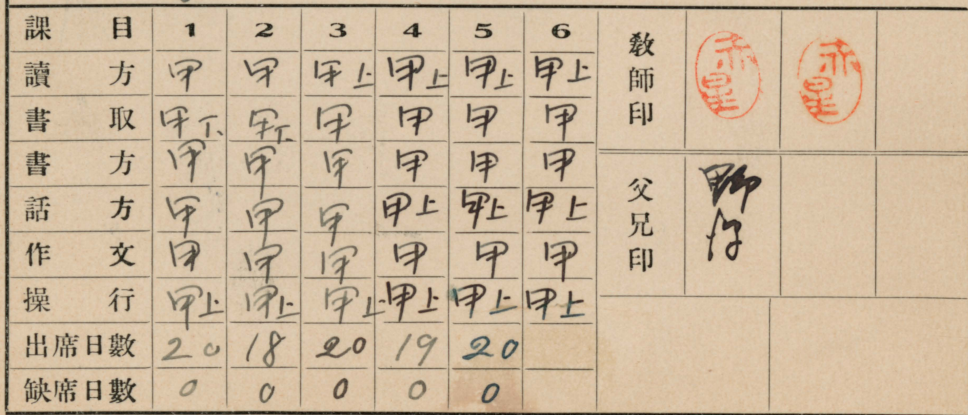 課目 1 2 3 4 5 6
讀方 甲 甲 甲上 甲上 甲上 甲上
書取 甲下 甲下 甲 甲 甲 甲
書方 甲 甲 甲 甲 甲 甲
話方 甲 甲 甲 甲上 甲上 甲上
作文 甲 甲 甲 甲 甲 甲
操行 甲上 甲上 甲上 甲上 甲上 甲上
出席日數 20 18 20 19 20
缺席日數 0 0 0 0 0
教師印 赤星 赤星
父兄印